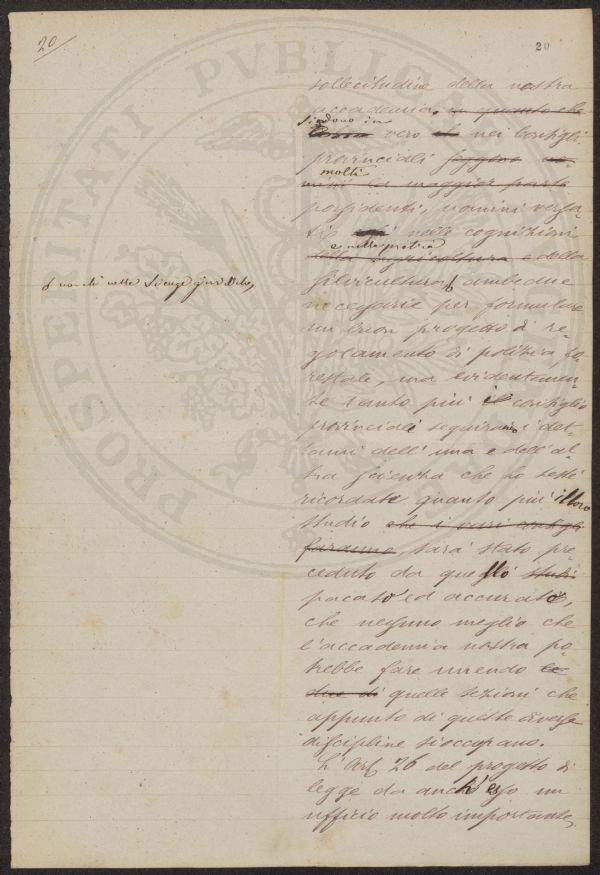 20
20
sollecitudine della nostra
accademia, in quanto che
siedono in
vero nei Consigli
provinciali seggono uo-
molti
mini la maggior parte
possidenti, uomini versa-
tis nelle cognizioni
e nella pratica
della agricoltura e della
silvicultura, ambedue
non di nelle Scienze giuridiche,
necessarie per formulare
un buon progetto di re-
golamento di polizia fo-
restale, ma evidentemen-
te tanto più il consiglio
provinciali seguiranno i det-
tami dell'una e dell'al-
tra scienza che ho testè
ricordate quanto più il loro
studio che i vari consigli
faranno, sarà stato pre-
ceduto da quello studi
pacato ed accurato,
che nessuno meglio che
l'accademia nostra po-
trebbe fare unendo le
due di quelle sezioni che
appunto di queste diverse
discipline si occupano.
L'Art. 26 del progetto di
legge da anch'esso un
ufficio molto importante
PROSPERITATI PVBLICAE